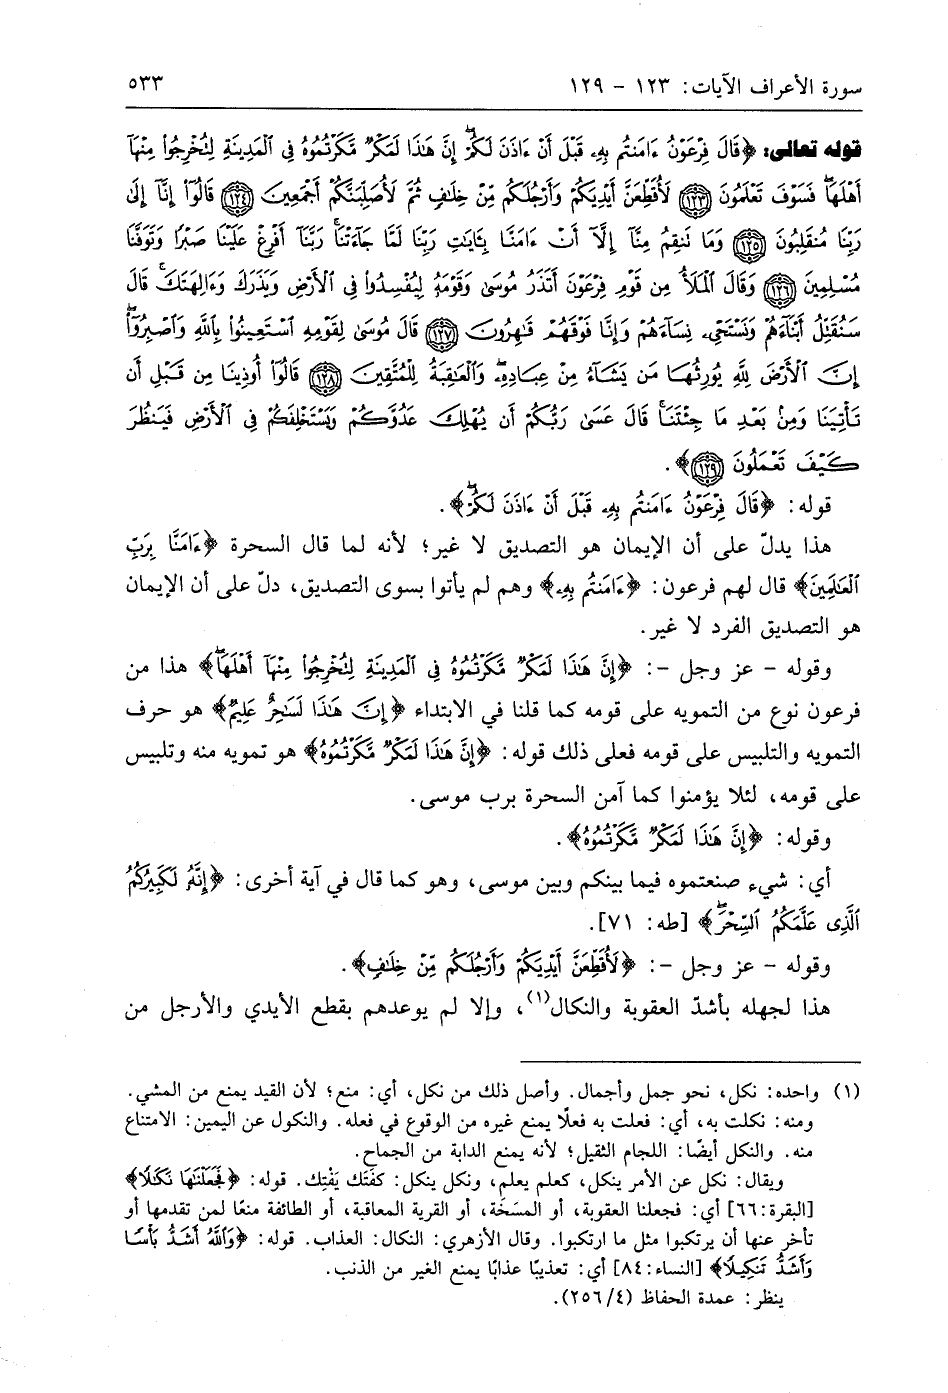 سورة الأعراف الآيات: ١٢٣ - ١٢٩
٥٣٣
قوله تعالى: ﴿قَالَ فِرْعَوْنُ ءَامَنتُم بِهِۦ قَبْلَ أَنْ ءَاذَنَ لَكُمْۖ إِنَّ هَٰذَا لَمَكْرٌ مَّكَرْتُمُوهُ فِي ٱلْمَدِينَةِ لِتُخْرِجُوا۟ مِنْهَآ
أَهْلَهَاۖ فَسَوْفَ تَعْلَمُونَ ۝١٢٣ لَأُقَطِّعَنَّ أَيْدِيَكُمْ وَأَرْجُلَكُم مِّنْ خِلَٰفٍ ثُمَّ لَأُصَلِّبَنَّكُمْ أَجْمَعِينَ ۝١٢٤ قَالُوٓا۟ إِنَّآ إِلَىٰ
رَبِّنَا مُنقَلِبُونَ ۝١٢٥ وَمَا تَنقِمُ مِنَّآ إِلَّآ أَنْ ءَامَنَّا بِـَٔايَٰتِ رَبِّنَا لَمَّا جَآءَتْنَاۚ رَبَّنَآ أَفْرِغْ عَلَيْنَا صَبْرًا وَتَوَفَّنَا
مُسْلِمِينَ ۝١٢٦ وَقَالَ ٱلْمَلَأُ مِن قَوْمِ فِرْعَوْنَ أَتَذَرُ مُوسَىٰ وَقَوْمَهُۥ لِيُفْسِدُوا۟ فِي ٱلْأَرْضِ وَيَذَرَكَ وَءَالِهَتَكَۚ قَالَ
سَنُقَتِّلُ أَبْنَآءَهُمْ وَنَسْتَحْيِۦ نِسَآءَهُمْ وَإِنَّا فَوْقَهُمْ قَٰهِرُونَ ۝١٢٧ قَالَ مُوسَىٰ لِقَوْمِهِ ٱسْتَعِينُوا۟ بِٱللَّهِ وَٱصْبِرُوٓا۟ۖ
إِنَّ ٱلْأَرْضَ لِلَّهِ يُورِثُهَا مَن يَشَآءُ مِنْ عِبَادِهِۦۖ وَٱلْعَٰقِبَةُ لِلْمُتَّقِينَ ۝١٢٨ قَالُوٓا۟ أُوذِينَا مِن قَبْلِ أَن
تَأْتِيَنَا وَمِنۢ بَعْدِ مَا جِئْتَنَاۚ قَالَ عَسَىٰ رَبُّكُمْ أَن يُهْلِكَ عَدُوَّكُمْ وَيَسْتَخْلِفَكُمْ فِي ٱلْأَرْضِ فَيَنظُرَ
كَيْفَ تَعْمَلُونَ ۝١٢٩﴾.
قوله: ﴿قَالَ فِرْعَوْنُ ءَامَنتُم بِهِۦ قَبْلَ أَنْ ءَاذَنَ لَكُمْۖ﴾.
هذا يدلّ على أن الإيمان هو التصديق لا غير؛ لأنه لما قال السحرة ﴿ءَامَنَّا بِرَبِّ
ٱلْعَٰلَمِينَ﴾ قال لهم فرعون: ﴿ءَامَنتُم بِهِۦ﴾ وهم لم يأتوا بسوى التصديق، دلّ على أن الإيمان
هو التصديق الفرد لا غير.
وقوله - عز وجل -: ﴿إِنَّ هَٰذَا لَمَكْرٌ مَّكَرْتُمُوهُ فِي ٱلْمَدِينَةِ لِتُخْرِجُوا۟ مِنْهَآ أَهْلَهَاۖ﴾ هذا من
فرعون نوع من التمويه على قومه كما قلنا في الابتداء ﴿إِنَّ هَٰذَا لَسَٰحِرٌ عَلِيمٌ﴾ هو حرف
التمويه والتلبيس على قومه فعلى ذلك قوله: ﴿إِنَّ هَٰذَا لَمَكْرٌ مَّكَرْتُمُوهُ﴾ هو تمويه منه وتلبيس
على قومه، لئلا يؤمنوا كما آمن السحرة برب موسى.
وقوله: ﴿إِنَّ هَٰذَا لَمَكْرٌ مَّكَرْتُمُوهُ﴾.
أي: شيء صنعتموه فيما بينكم وبين موسى، وهو كما قال في آية أخرى: ﴿إِنَّهُۥ لَكَبِيرُكُمُ
ٱلَّذِى عَلَّمَكُمُ ٱلسِّحْرَۖ﴾ [طه: ٧١].
وقوله - عز وجل -: ﴿لَأُقَطِّعَنَّ أَيْدِيَكُمْ وَأَرْجُلَكُم مِّنْ خِلَٰفٍ﴾.
هذا لجهله بأشدّ العقوبة والنكال(١)، وإلا لم يوعدهم بقطع الأيدي والأرجل من
(١) واحده: نكل، نحو جمل وأجمال. وأصل ذلك من نكل، أي: منع؛ لأن القيد يمنع من المشي.
ومنه: نكلت به، أي: فعلت به فعلًا يمنع غيره من الوقوع في فعله. والنكول عن اليمين: الامتناع
منه. والنكل أيضًا: اللجام الثقيل؛ لأنه يمنع الدابة من الجماح.
ويقال: نكل عن الأمر ينكل، كعلم يعلم، ونكل ينكل: كفَتَك يَفْتِك. قوله: ﴿فَجَعَلْنَٰهَا نَكَٰلًا﴾
[البقرة:٦٦] أي: فجعلنا العقوبة، أو المسَخَة، أو القرية المعاقبة، أو الطائفة منعًا لمن تقدمها أو
تأخر عنها أن يرتكبوا مثل ما ارتكبوا. وقال الأزهري: النكال: العذاب. قوله: ﴿وَٱللَّهُ أَشَدُّ بَأْسًا
وَأَشَدُّ تَنكِيلًا﴾ [النساء:٨٤] أي: تعذيبًا عذابًا يمنع الغير من الذنب.
ينظر: عمدة الحفاظ (٤/٢٥٦).